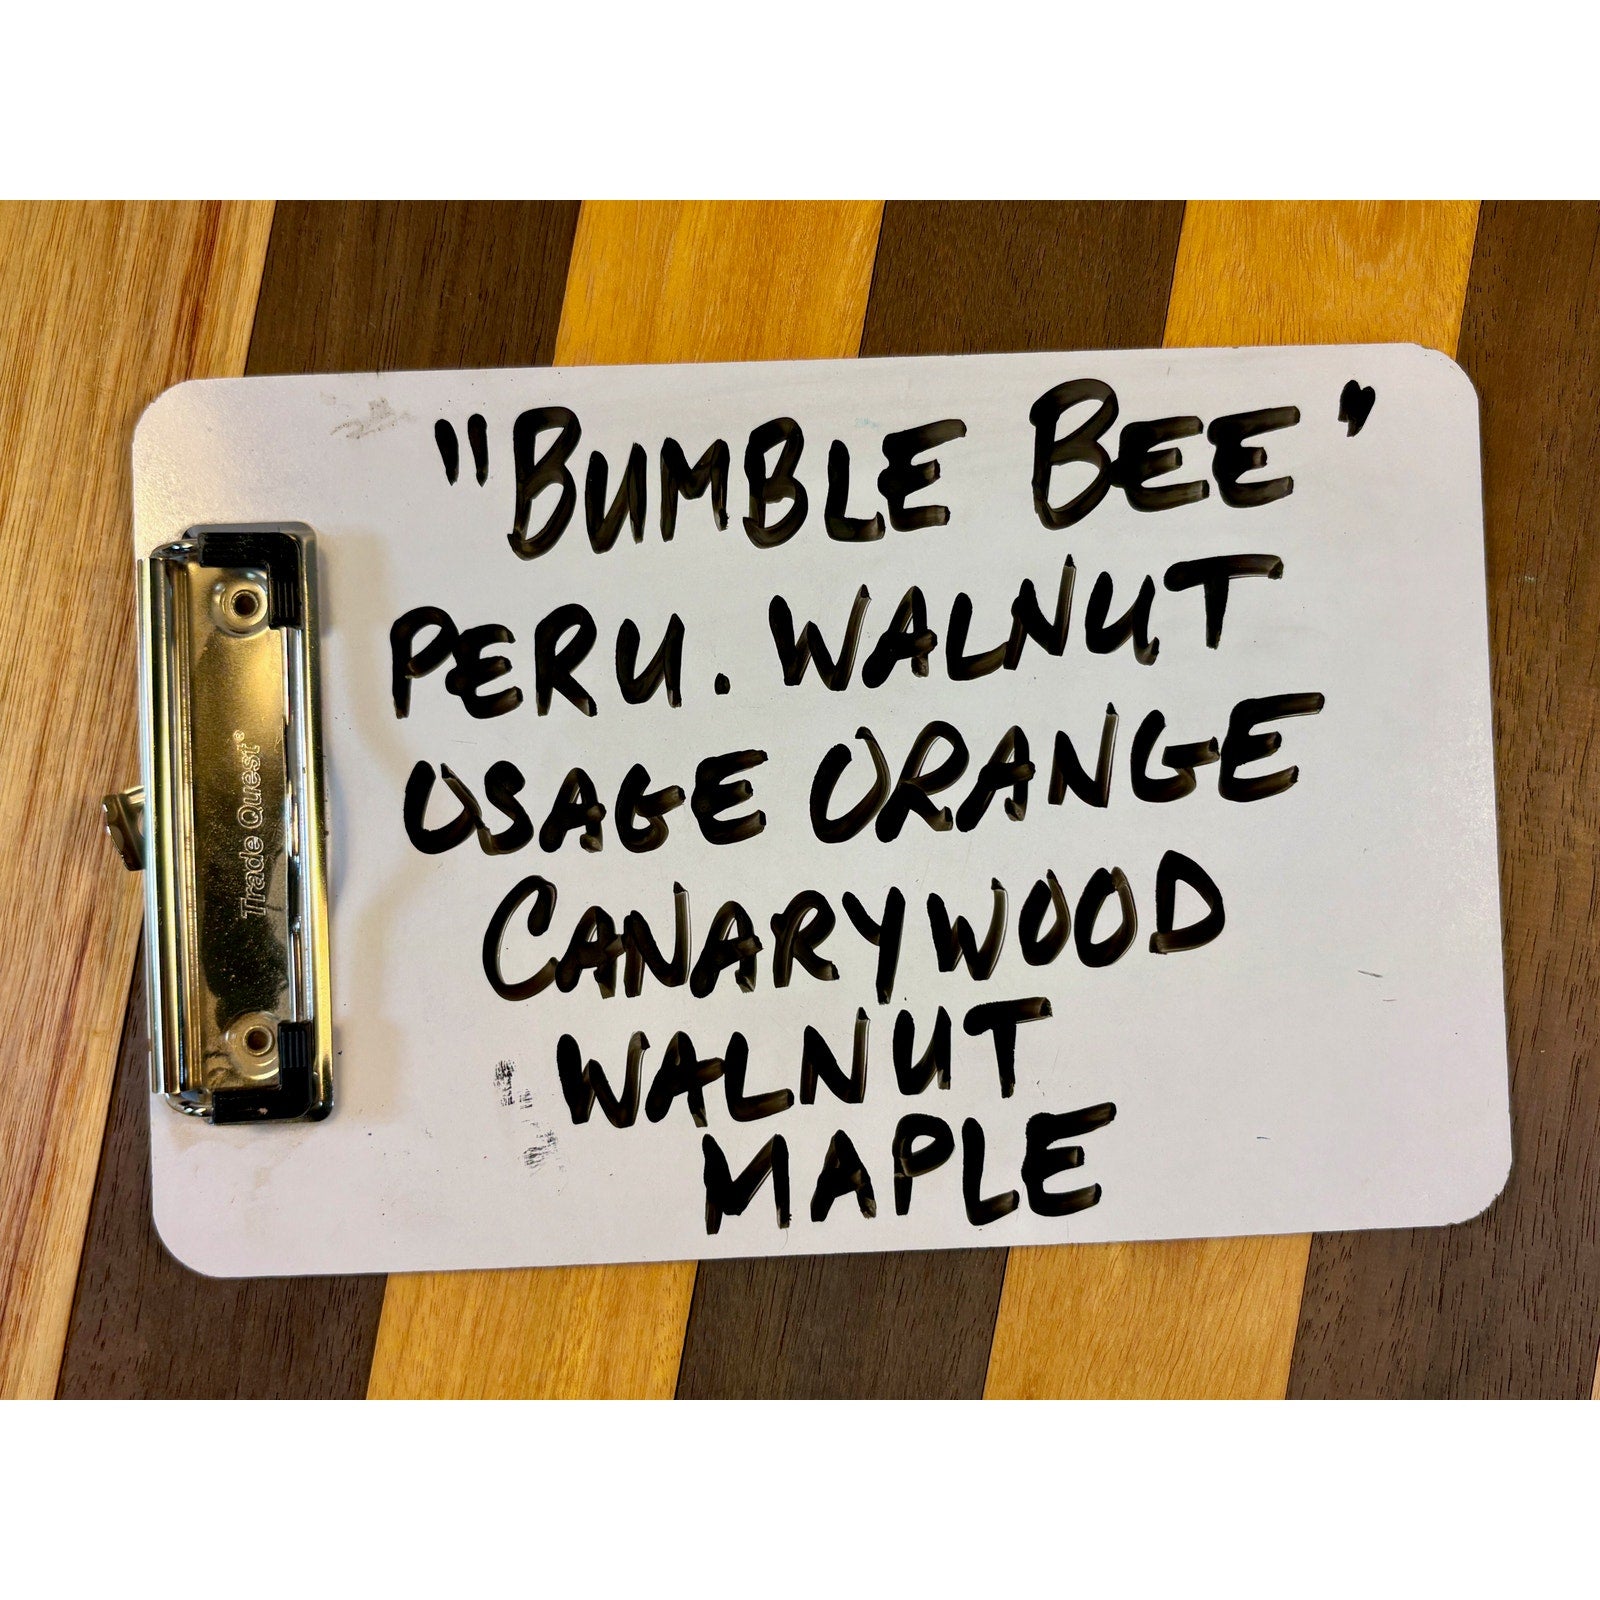 "BUMBLE BEE"
PERU. WALNUT
OSAGE ORANGE
CANARYWOOD
WALNUT
MAPLE
Trade Quest®